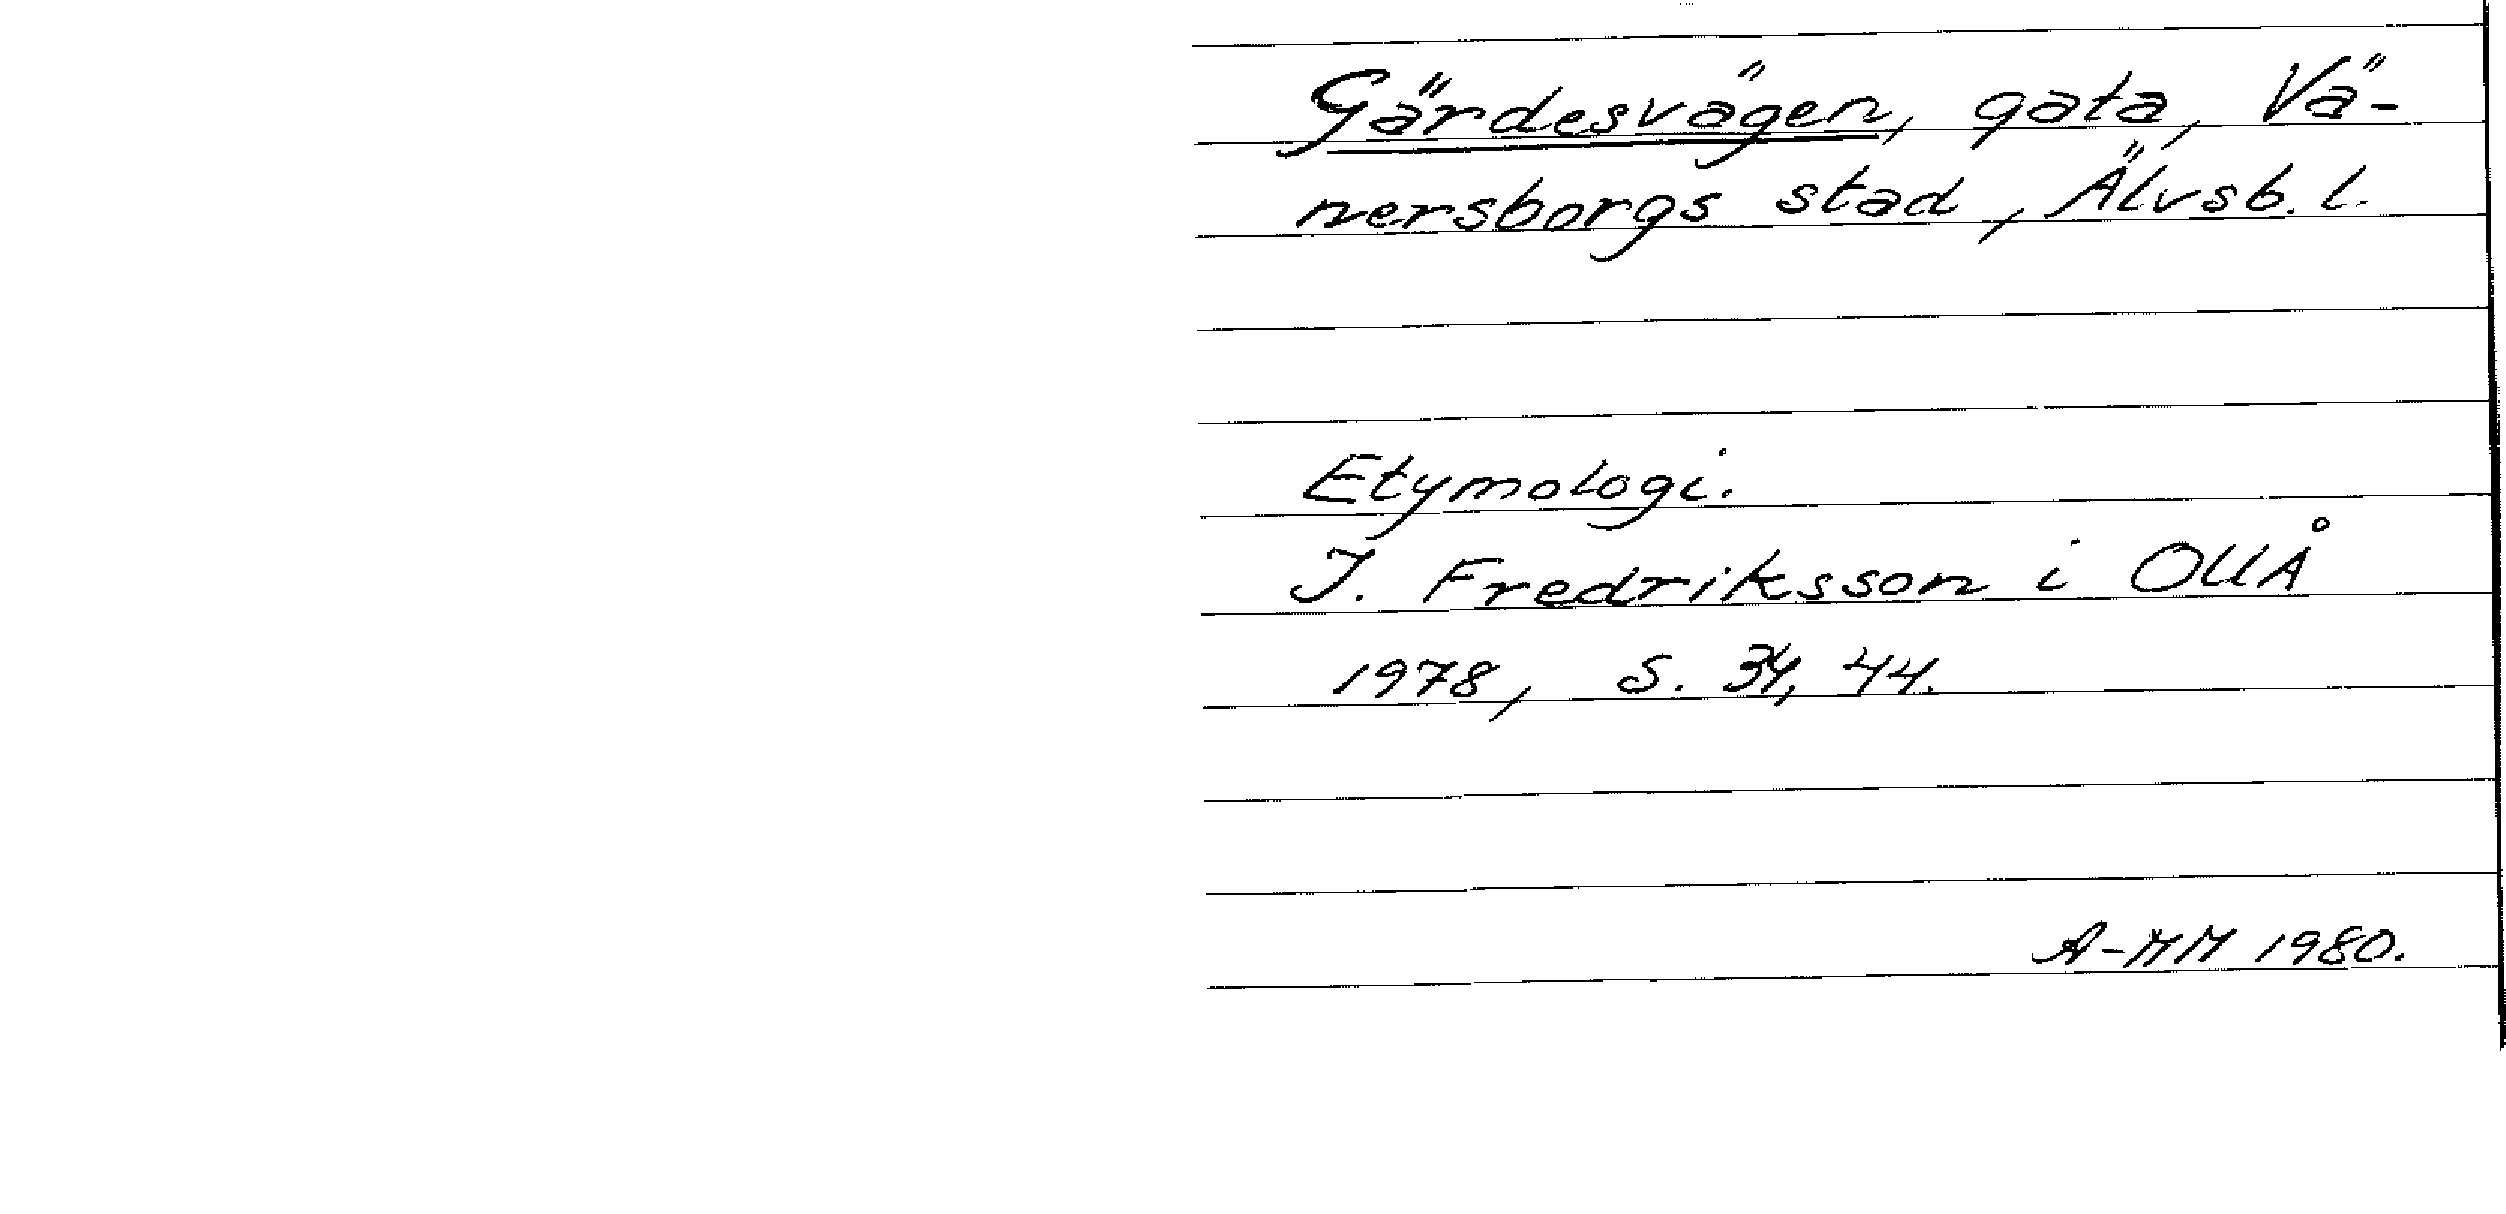 Gärdesvägen, gata, Vä-
nersborgs stad, Älvsb. l.
Etymologi.
I. Fredriksson i OUÅ
1978, S. 34, 44.
A-MM 1980.